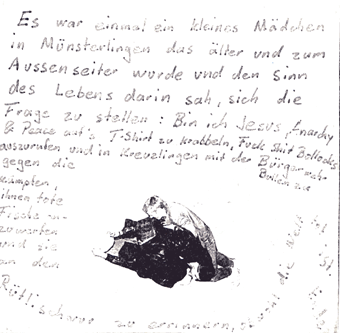 Es war einmal ein kleines Mädchen
in Münsterlingen das älter und zum
Aussenseiter wurde und den Sinn
des Lebens darin sah, sich die
Frage zu stellen: Bin ich Jesus, Anarchy
& Peace auf's T-Shirt zu krabbeln, Fuck Shit Bollocks
auszurufen und in Kreuzlingen mit der Bürgerwehr
gegen die Bullen zu
kämpfen,
ihnen tote
Fische zu-
zuwerfen
und sie
an den
Rütlischwur zu erinnern, die